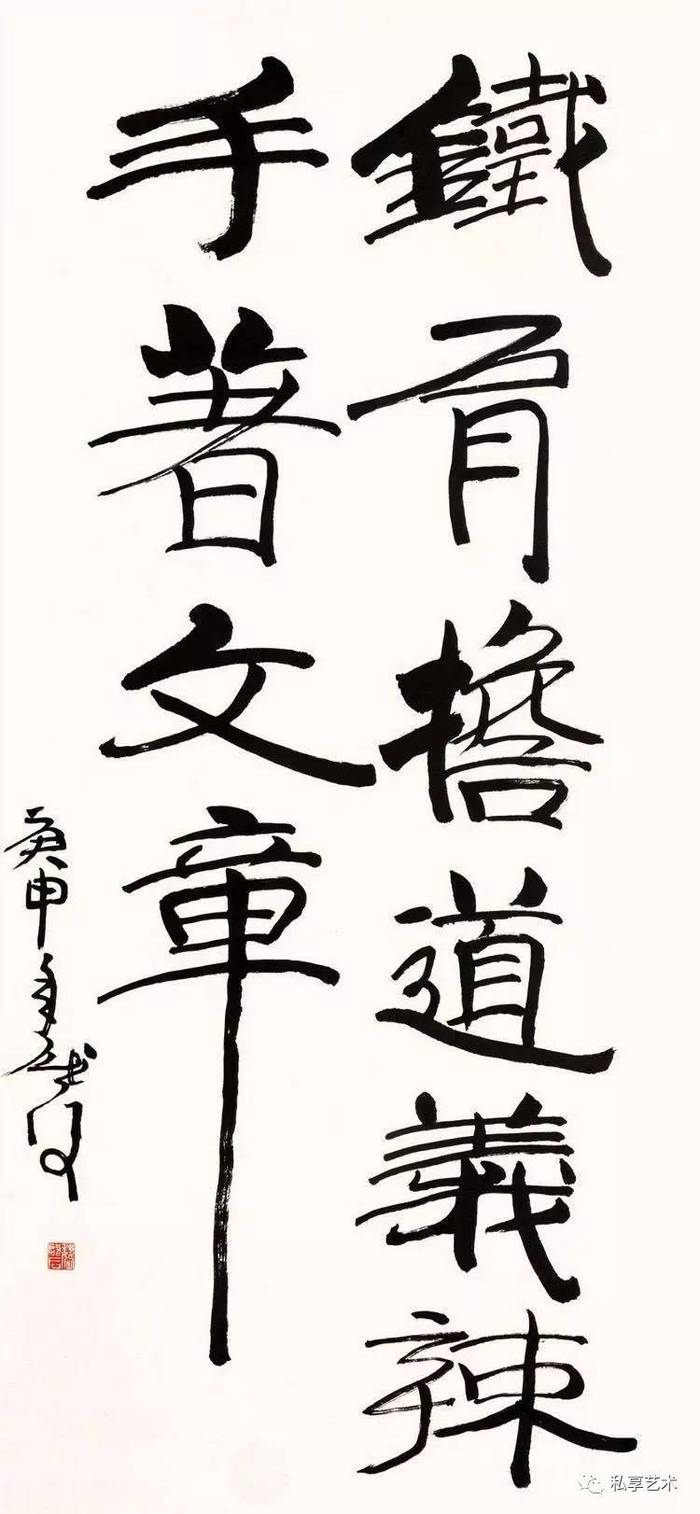 鐵肩擔道義辣
手著文章
庚申年
私享艺术